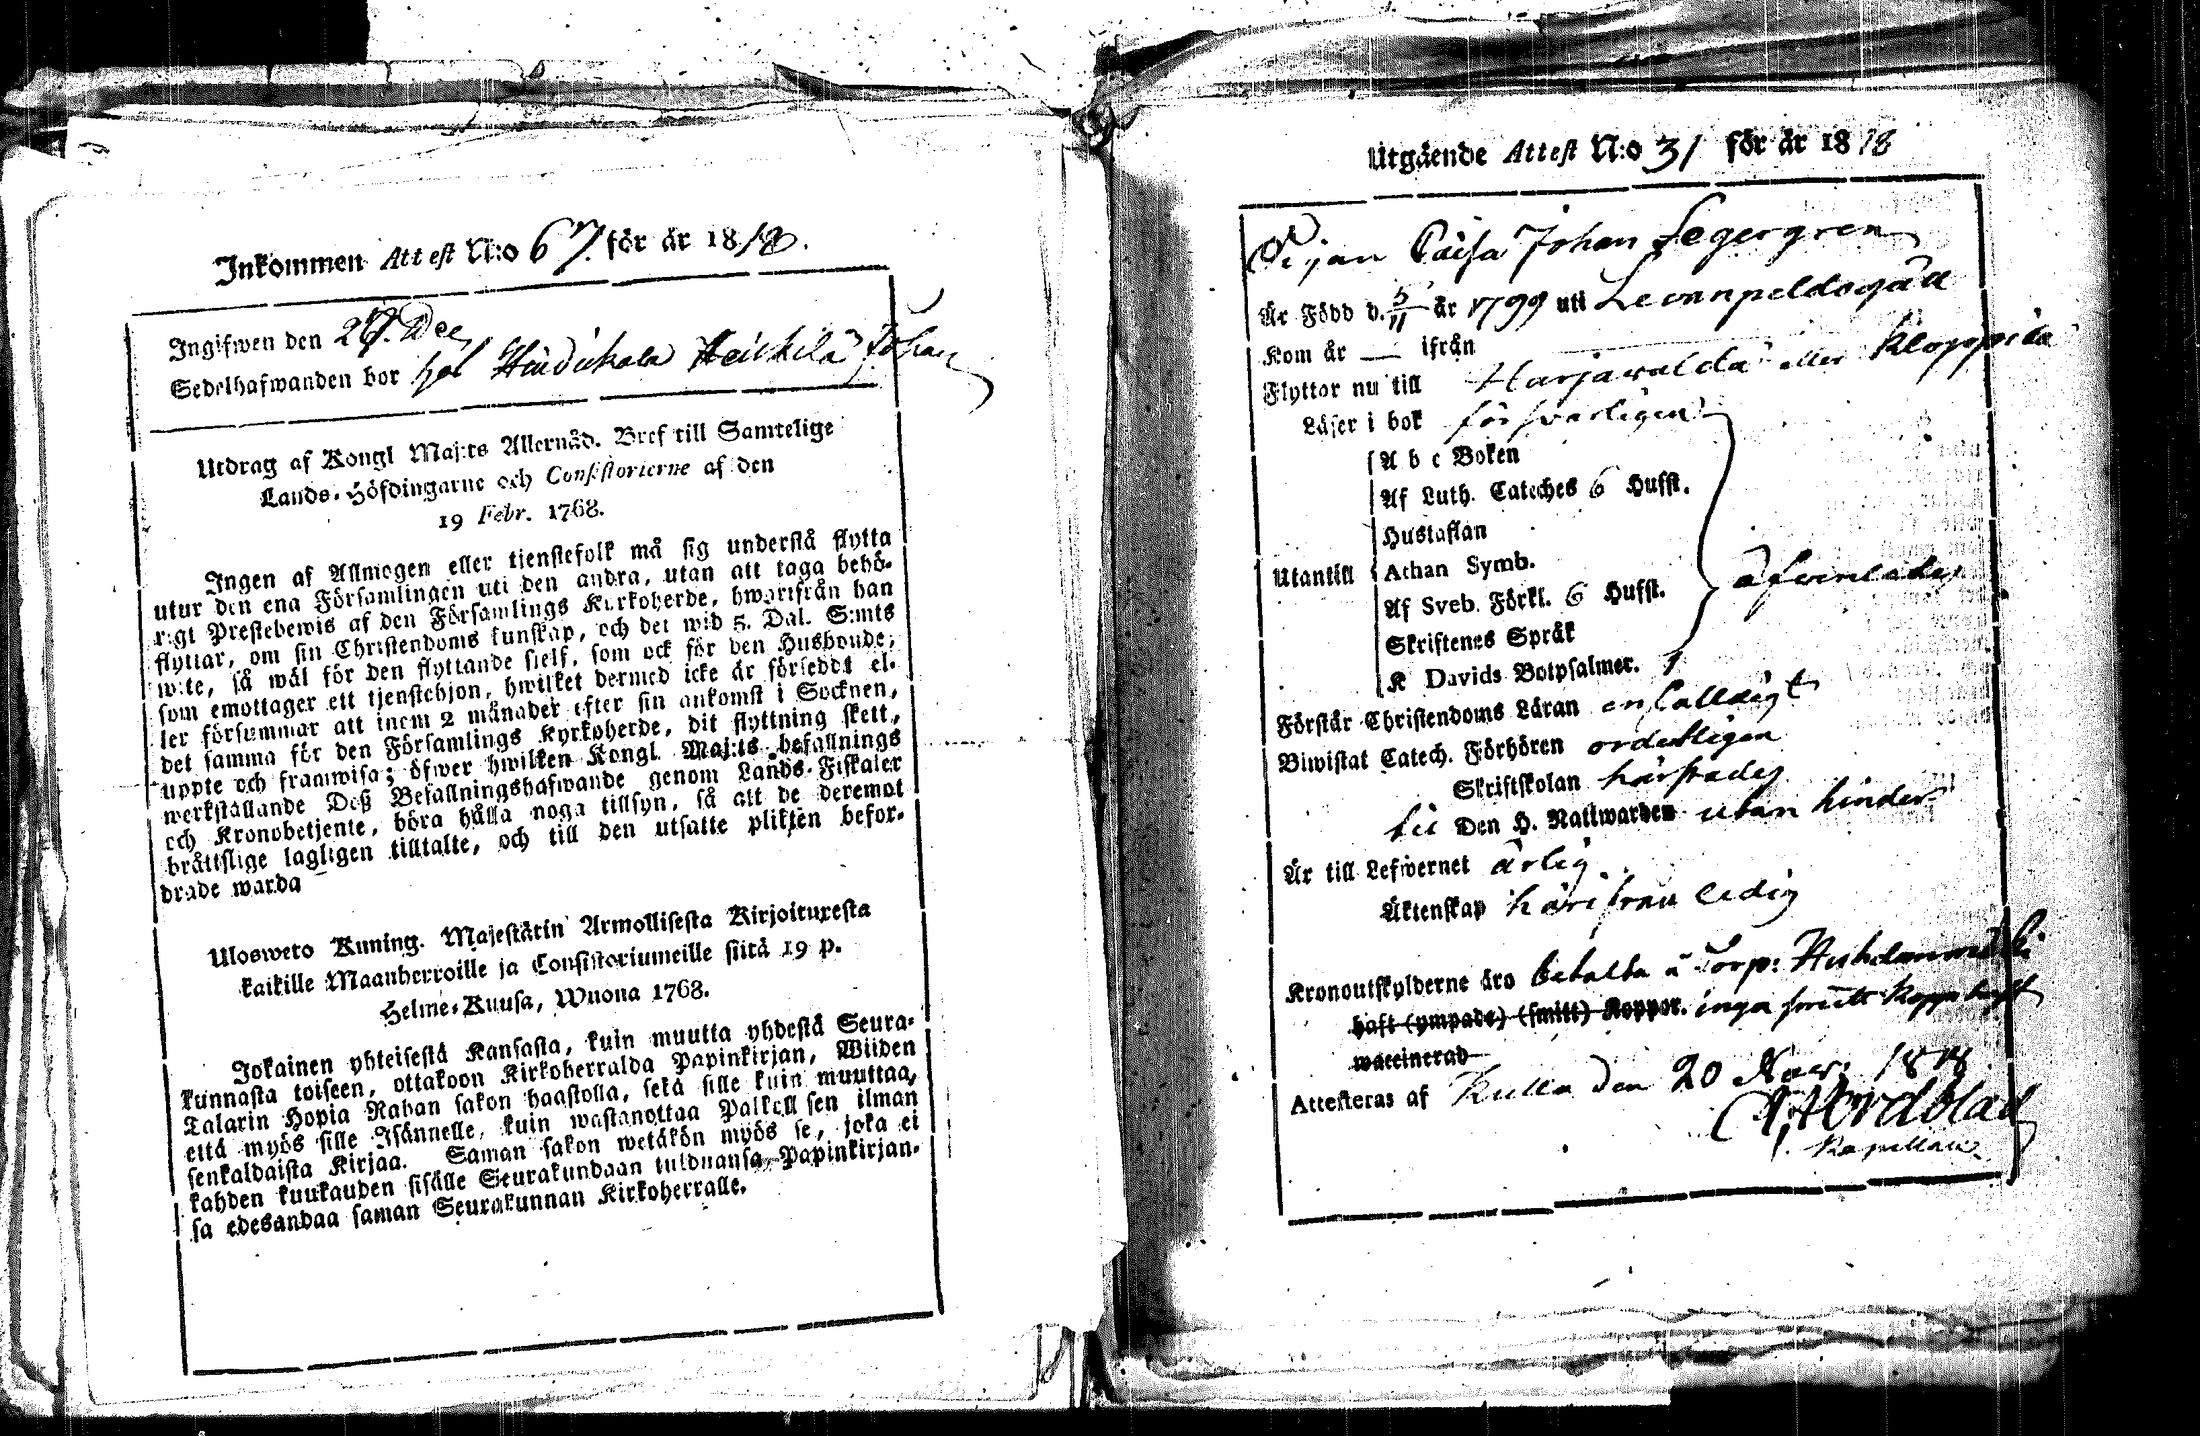 Inkommen Attest N:o 67. för år 1818.
Ingifwen den 27. Dec
Sedelhafwanden bor hos Johan
Utdrag af Kongl Maj:ts Allernåd. Bref till Samtelige
Lands-Höfdingarne och Consistorierne af den
19 Febr. 1768.
Ingen af Allmogen eller tienstefolk må sig understå flytta
utur den ena Församlingen uti den andra, utan att taga behö-
rigt Prestebewis af den Församlings Kyrkoherde, hwartifrån han
flyttar, om sin Christendoms kunskap, och det wid 5. Dal. S:mts
wite, så wäl för den flyttande sielf, som ock för den Husbonde,
som emottager ett tjenstehjon, hwilket dermed icke är försedt el-
ler försummar att inom 2 månader efter sin ankomst i Socknen,
det samma för den Församlings Kyrkoherde, dit flyttning skett,
uppte och framwisa; öfwer hwilken Kongl. Maj:ts befallnings
werkställande Deß Befallningshafwande genom Lands-Fiskaler
och Kronobetjente, böra hålla noga tillsyn, så att de deremot
bråttslige lagligen tilltalte, och till den utsatte plikten befor-
drade warda
Ulosweto Kuning. Majestätin Armollisesta Kirjoituxesta
kaikille Maanherroille ja Consistoriumeille siitä 19 p.
Helme-Kuusa, Wuona 1768.
Jokainen yhteisestä Kansasta, kuin muutta yhdestä Seura-
kunnasta toiseen, ottakoon Kirkoherralda Papinkirjan, Wiiden
Talarin Hopia Rahan sakon haastolla, sekä sille kuin muuttaa,
että myös sille Isännelle, kuin wastanottaa Palkollisen ilman
senkaldaista Kirjaa. Saman sakon wetäkön myös se, joka ei
kahden kuukauden sisälle Seurakundaan tulduansa Papinkirjan-
sa edesandaa saman Seurakunnan Kirkoherralle.
Utgående Attest N:o 31 för år 1818
Pijan Caisa Johan Segergren
Är Född d. 5/11 år 1799 uti
Kom år — ifrån
Flyttar nu till Harjawalda eller
Läser i bok försvarligen
A b c Boken
Af Luth. Cateches 6 Hufst.
Hustaflan
Utantill Athan Symb. äfvenledes
Af Sveb. Förkl. 6 Hufst.
Skriftenes Språk
K Davids Botpsalmer.
Förstår Christendoms Läran enfalldigt
Biwistat Catech. Förhören ordentligen
Skriftskolan härstädes
Den H. Nattwarden utan hinder
Är till Lefwernet ärlig
Äktenskap härifrån ledig
Kronoutskylderne äro betalta
haft (ympade) (smitt) Koppor. inga
waccinerad
Attesteras af Kulla den 20 Nov: 1818
Nordblad
Kapellan